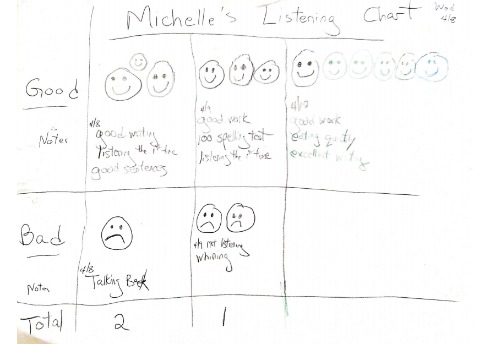 Michelle's Listening Chart
Wed
4/8
Good
Notes
4/8
good writing
listening the 1st time
good sentences
4/9
good work
100 spelling test
listening the 1st time
4/10
good work
eating quietly
excellent writing
Bad
Notes
4/8
Talking Back
4/9 not listening
whining
Total
2
1